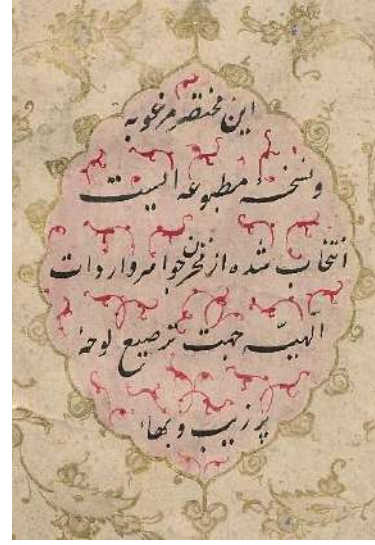 این مختصر مرغوبه
و نسخهٔ مطبوعه ایست
انتخاب شده از مخزن جواهر واردات
الٓهیّه جهت ترصیع لوحهٔ
پر زیب و بهاء